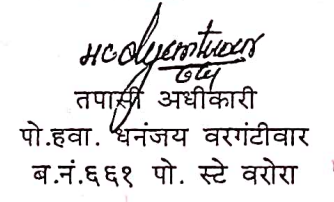 तपासी अधीकारी
पो.हवा. धनंजय वरगंटीवार
ब.नं.६६१ पो. स्टे वरोरा